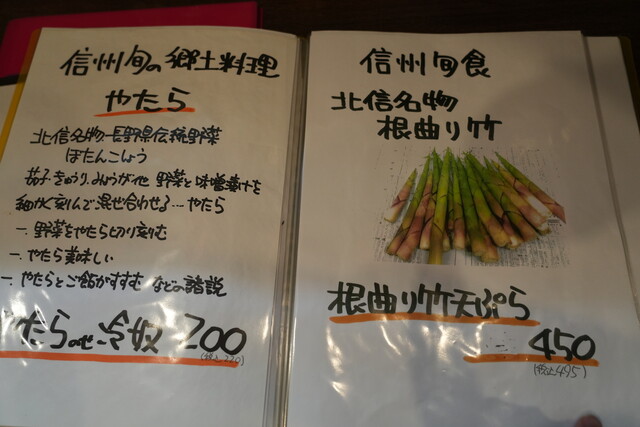 信州旬の郷土料理
やたら
北信名物 長野県伝統野菜
ぼたんこしょう
茄子きゅうり、みょうが他 野菜と味噌漬けを
細かく刻んで混ぜ合わせる…やたら
一. 野菜をやたら切り刻む
一. やたら美味しい
一. やたらとご飯がすすむ などの諸説
やたらのせ冷奴 200
(税込220)
信州旬食
北信名物
根曲り竹
根曲り竹天ぷら
450
(税込495)